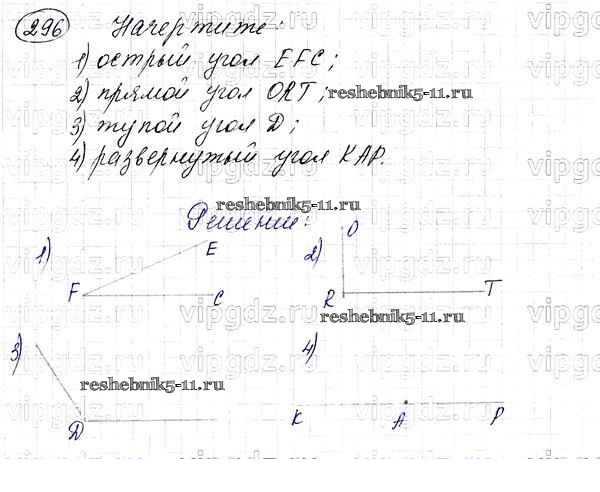 296 Начертите:
1) острый угол EFC;
2) прямой угол ORT; reshebnik5-11.ru
3) тупой угол D;
4) развернутый угол KAP.
reshebnik5-11.ru
Решение:
1) E F C
2) O R T
reshebnik5-11.ru
3) D
reshebnik5-11.ru
4) K A P
vipgdz.ru